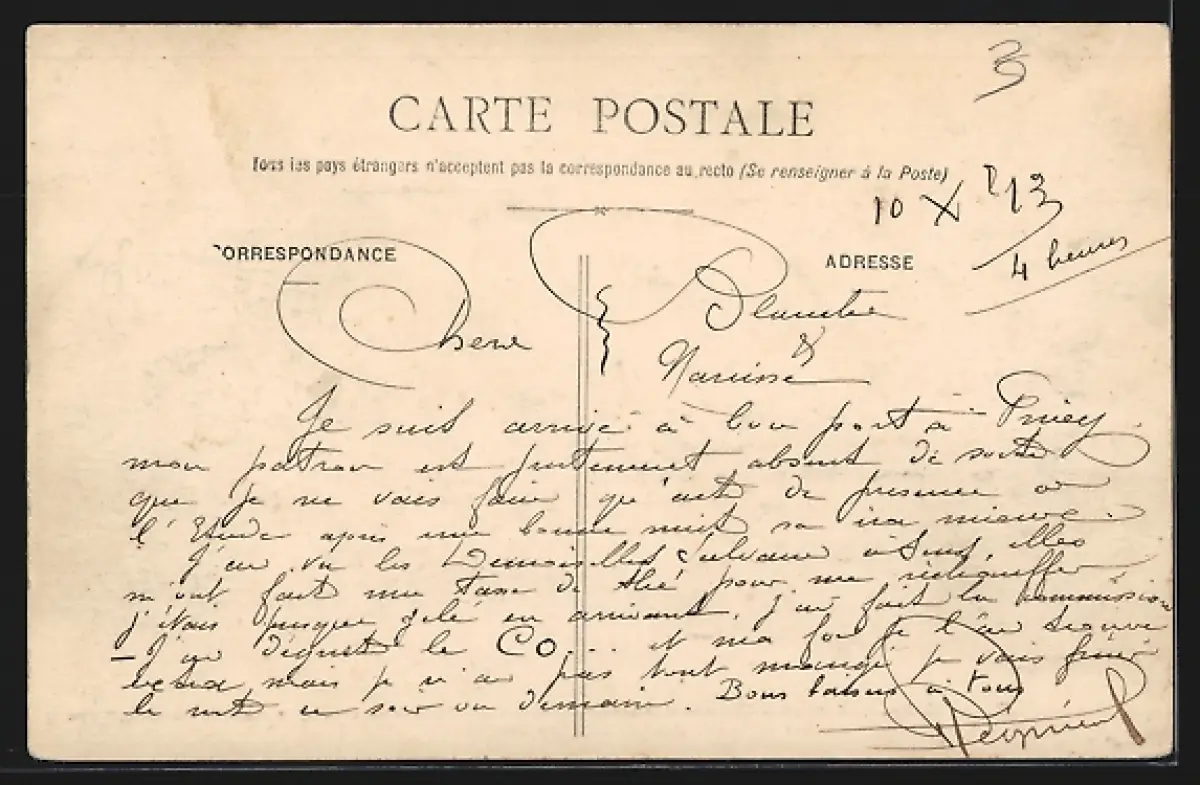 3
CARTE POSTALE
Tous les pays étrangers n'acceptent pas la correspondance au recto (Se renseigner à la Poste)
10 Xb 13
4 heures
CORRESPONDANCE
ADRESSE
Chere Blanche
&
Narcisse
Je suis arrivé à bon port à Piney.
mon patron est justement absent de sorte
que je ne vais faire qu'acte de présence a
l'Etude après une bonne nuit sa ira mieux.
J'ai vu les Demoiselles à Sens, elles
m'ont fait une tasse de thé pour me réchauffer
j'étais presque gelé en arrivant. j'ai fait la commission
- J'ai le CO... et ma foi je l'ai trouvé
mais je n'ai pas tout mangé je vais finir
le rest ce soir ou demain. Bons baisers à tous